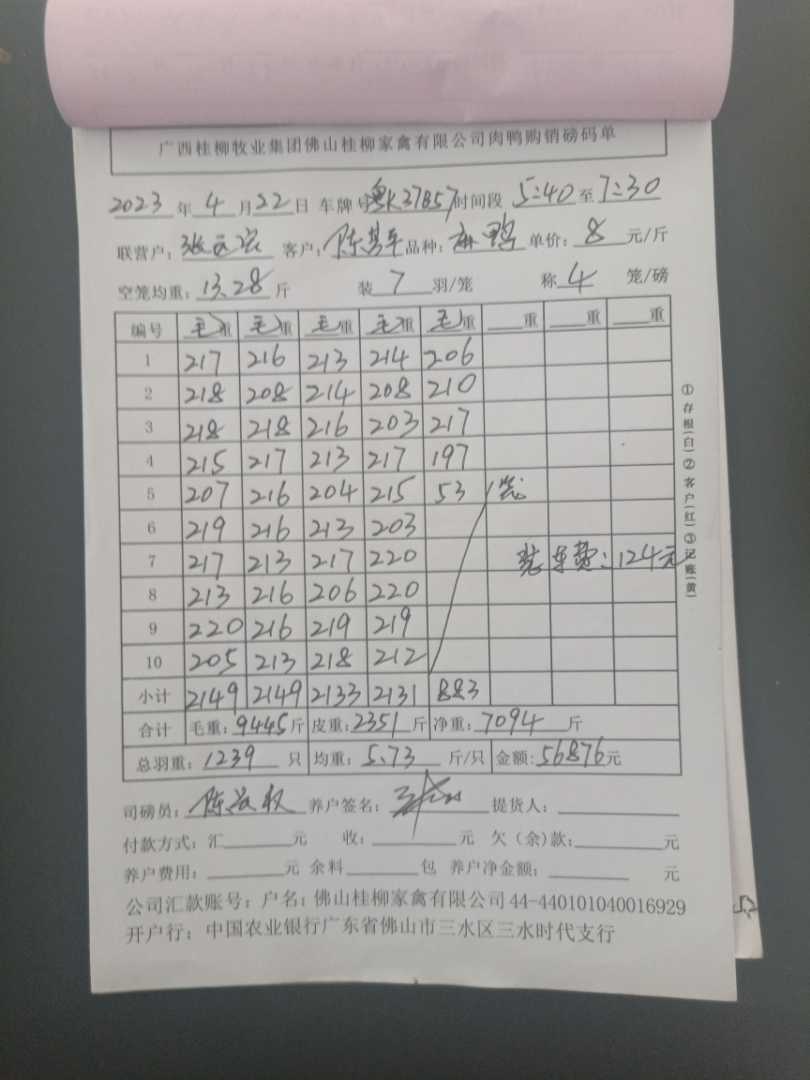 广西桂柳牧业集团佛山桂柳家禽有限公司肉鸭购销磅码单
2023 年 4 月 22 日 车牌号 粤K37B57 时间段 5:40 至 7:30
联营户: 客户: 陈 品种: 麻鸭 单价: 8 元/斤
空笼均重: 13.28 斤 装 7 羽/笼 称 4 笼/磅
编号 毛重 毛重 毛重 毛重 毛重 重 重 重
1 217 216 213 214 206
2 218 208 214 208 210
3 218 218 216 203 217
4 215 217 213 217 197
5 207 216 204 215 53 1笼
6 219 216 213 203
7 217 213 217 220 装车费:124元
8 213 216 206 220
9 220 216 219 219
10 205 213 218 212
小计 2149 2149 2133 2131 883
合计 毛重: 9445 斤 皮重: 2351 斤 净重: 7094 斤
总羽重: 1239 只 均重: 5.73 斤/只 金额: 56876 元
司磅员: 陈 养户签名: 提货人:
付款方式: 汇 元 收: 元 欠(余)款: 元
养户费用: 元 余料 包 养户净金额: 元
公司汇款账号: 户名: 佛山桂柳家禽有限公司 44-440101040016929
开户行: 中国农业银行广东省佛山市三水区三水时代支行
①存根(白)②客户(红)③记账(黄)